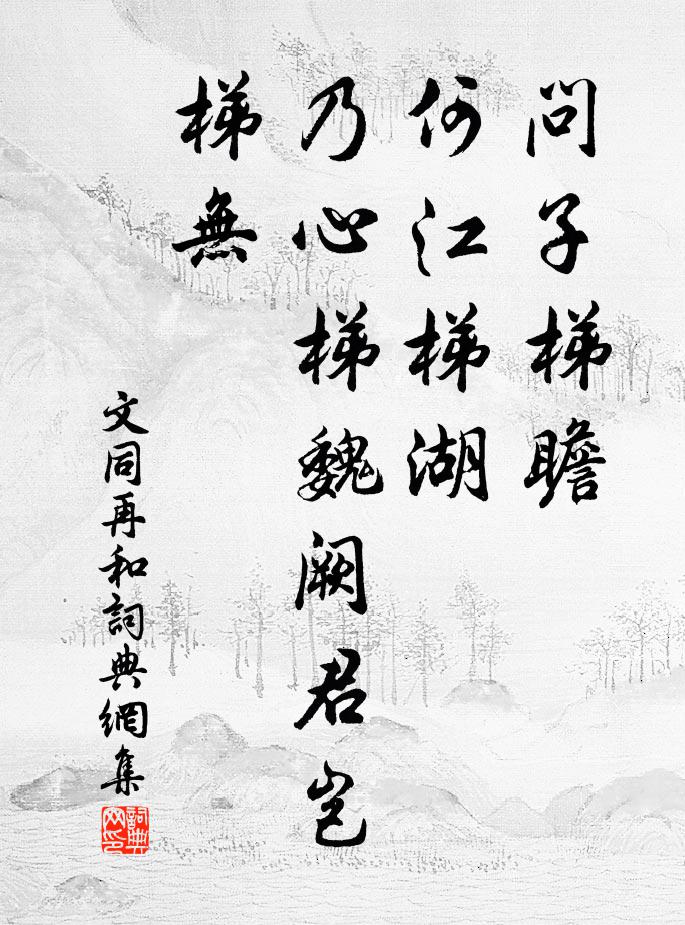 問子梯瞻
何江梯湖
乃心梯魏闕君豈
梯無
文同再和詞典網集
詞典網印